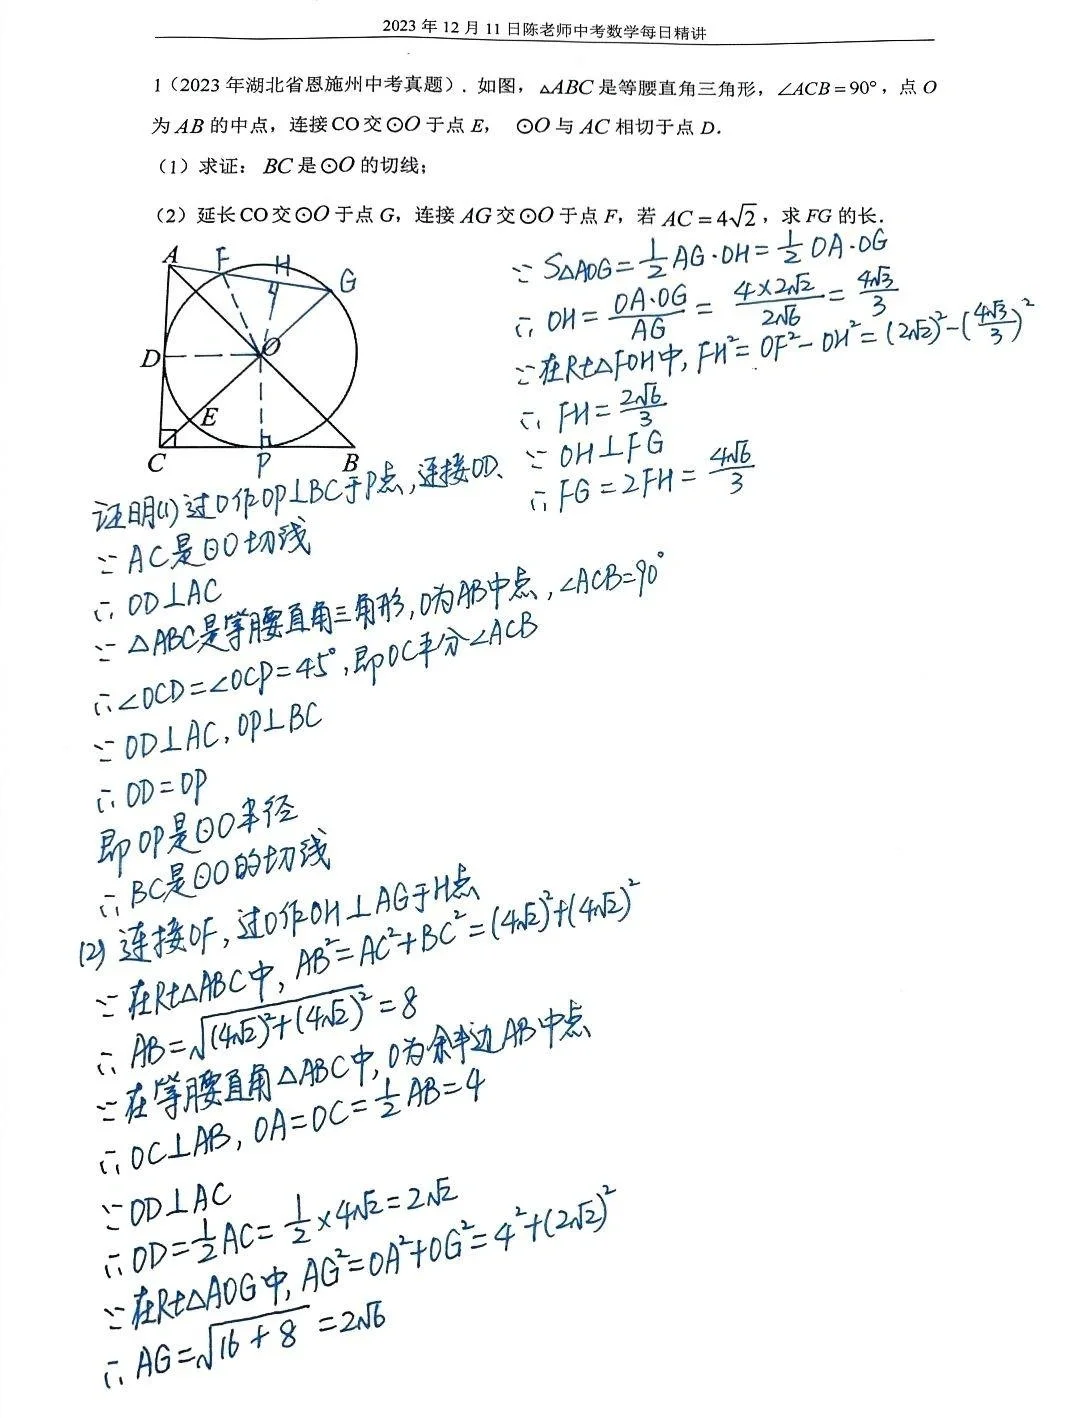 2023年12月11日陈老师中考数学每日精讲
1(2023年湖北省恩施州中考真题). 如图, △ABC是等腰直角三角形, ∠ACB=90°, 点O
为AB的中点, 连接CO交⊙O于点E, ⊙O与AC相切于点D.
(1) 求证: BC是⊙O的切线;
(2) 延长CO交⊙O于点G, 连接AG交⊙O于点F, 若AC=4√2, 求FG的长.
A F H G
D O
E
C P B
∵ S△AOG=1/2 AG·OH=1/2 OA·OG
∴ OH=OA·OG/AG=4×2√2/2√6=4√3/3
∵在Rt△FOH中, FH²=OF²-OH²=(2√2)²-(4√3/3)²
∴ FH=2√6/3
∵ OH⊥FG
∴ FG=2FH=4√6/3
证明(1)过O作OP⊥BC于P点,连接OD、
∵ AC是⊙O切线
∴ OD⊥AC
∵ △ABC是等腰直角三角形,O为AB中点,∠ACB=90°
∴∠OCD=∠OCP=45°,即OC平分∠ACB
∵ OD⊥AC,OP⊥BC
∴ OD=OP
即OP是⊙O半径
∴ BC是⊙O的切线
(2)连接OF,过O作OH⊥AG于H点
∵ 在Rt△ABC中, AB²=AC²+BC²=(4√2)²+(4√2)²
∴ AB=√(4√2)²+(4√2)²=8
∵在等腰直角△ABC中,O为斜边AB中点
∴ OC⊥AB, OA=OC=1/2 AB=4
∵OD⊥AC
∴ OD=1/2 AC=1/2×4√2=2√2
∵在Rt△AOG中, AG²=OA²+OG²=4²+(2√2)²
∴ AG=√16+8=2√6